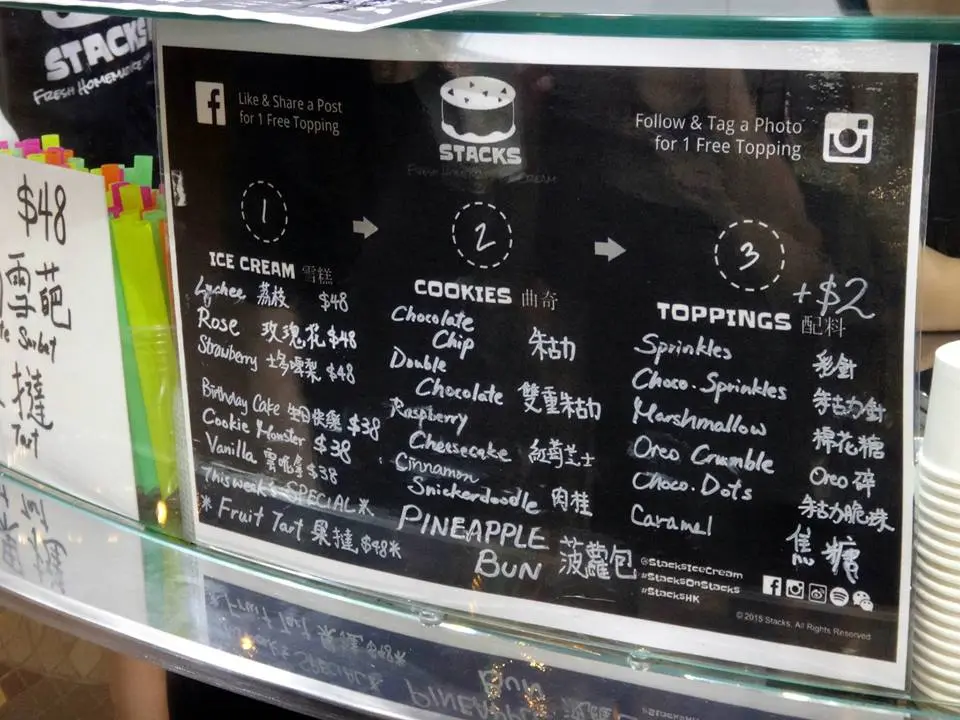 STACKS
FRESH HOMEMADE
$48
雪葩
Sorbet
撻
Tart
Like & Share a Post
for 1 Free Topping
STACKS
FRESH HOMEMADE ICE CREAM
Follow & Tag a Photo
for 1 Free Topping
1
ICE CREAM 雪糕
Lychee 荔枝 $48
Rose 玫瑰花 $48
Strawberry 士多啤梨 $48
Birthday Cake 生日快樂 $38
Cookie Monster $38
Vanilla 雲呢拿 $38
This week's SPECIAL 米
米 Fruit Tart 果撻 $48 米
2
COOKIES 曲奇
Chocolate
Chip 朱古力
Double
Chocolate 雙重朱古力
Raspberry
Cheesecake 紅莓芝士
Cinnamon
Snickerdoodle 肉桂
PINEAPPLE
BUN 菠蘿包
3
+$2
TOPPINGS 配料
Sprinkles 彩針
Choco. Sprinkles 朱古力針
Marshmallow 棉花糖
Oreo Crumble Oreo 碎
Choco. Dots 朱古力脆珠
Caramel 焦糖
@StacksIceCream
#StacksOnStacks
#StacksHK
© 2015 Stacks, All Rights Reserved